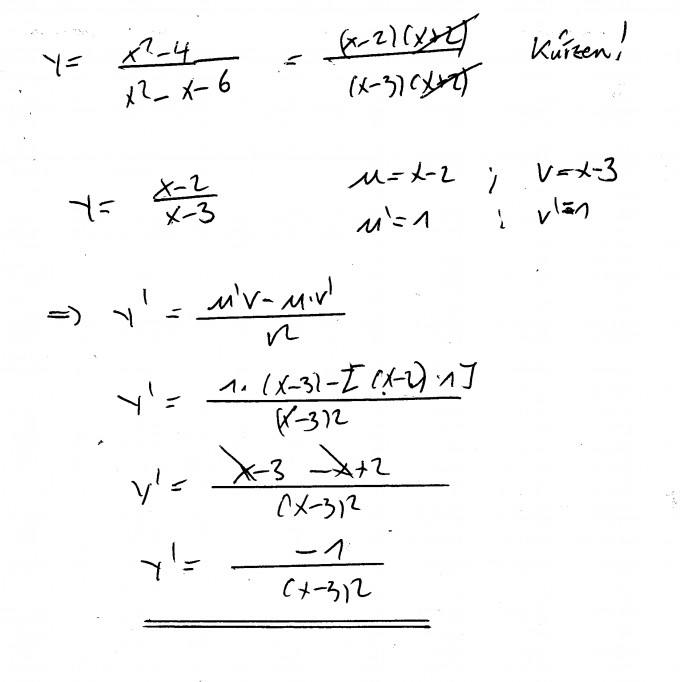 y = (x² - 4)/(x² - x - 6) = ((x-2)(x+2))/((x-3)(x+2)) Kürzen!
y = (x-2)/(x-3) u = x-2 ; v = x-3
u' = 1 ; v' = 1
=> y' = (u'v - u·v')/v²
y' = (1·(x-3) - [(x-2)·1])/(x-3)²
y' = (x-3 -x+2)/(x-3)²
y' = (-1)/(x-3)²